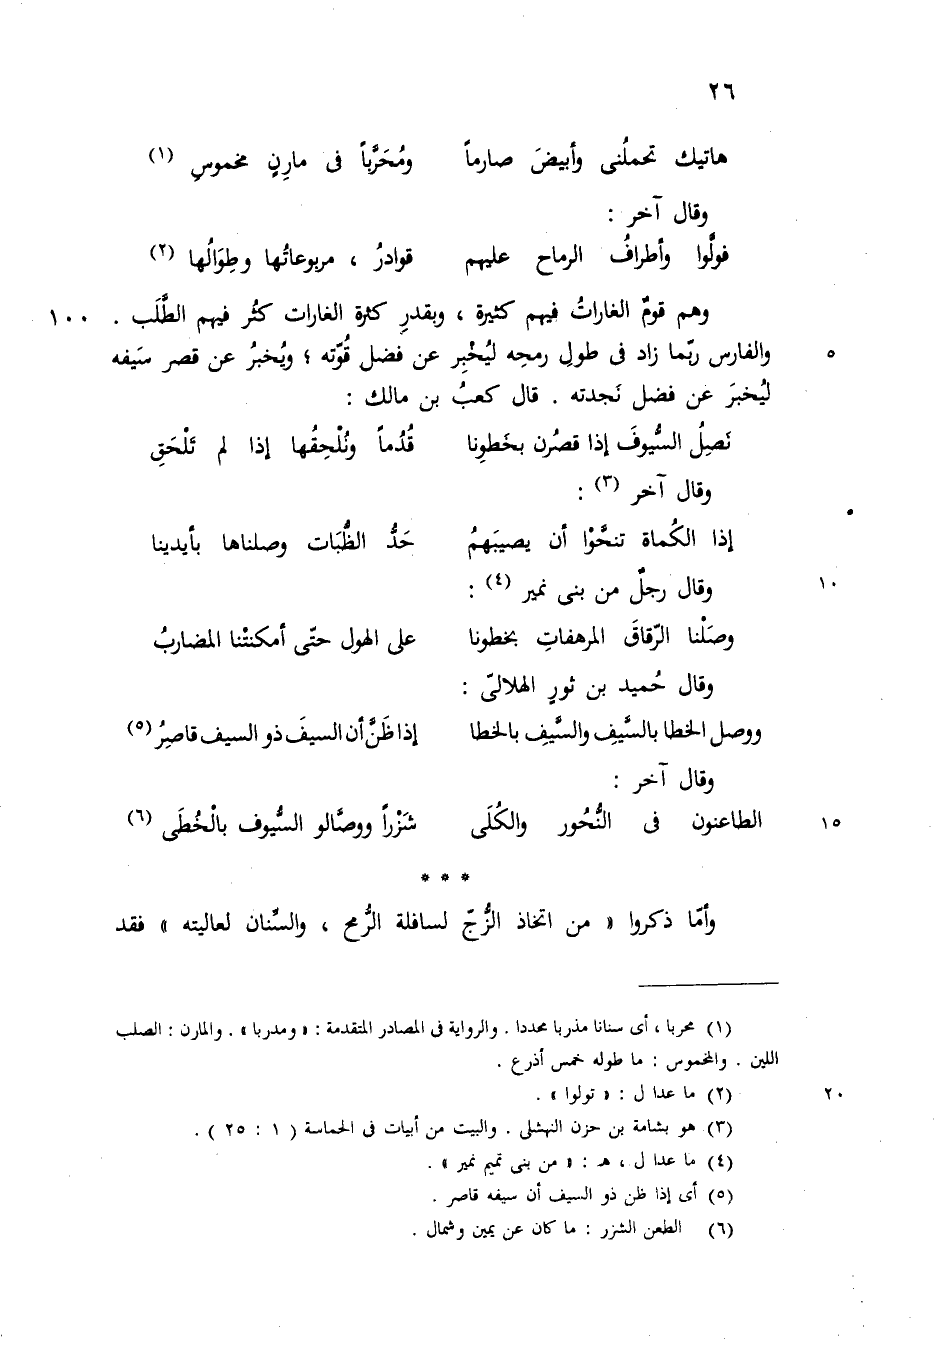 ٢٦
هاتيك تحملُنى وأبيضَ صارماً ومُحَرَّباً فى مارِنٍ مخموسِ (١)
وقال آخر :
فولَّوا وأطرافُ الرماح عليهم قوادرُ ، مربوعاتُها وطِوَالُها (٢)
وهم قومٌ الغاراتُ فيهم كثيرة ، وبقدرِ كثرة الغارات كثُر فيهم الطَّلَب . ١٠٠
والفارس ربّما زاد فى طولِ رمحِه ليُخْبِر عن فضل قُوّته ؛ ويُخبرُ عن قصر سَيفه ٥
ليُخبرَ عن فضل نَجدته . قال كعبُ بن مالك :
نَصِلُ السُّيوفَ إذا قصُرن بخَطوِنا قُدُماً ونُلْحِقُها إذا لم تَلْحَقِ
وقال آخر (٣) :
إذا الكُماة تنحَّوْا أن يصيبَهمُ حَدُّ الظُّبَات وصلناها بأيدينا
وقال رجلٌ من بنى نمير (٤) : ١٠
وصَلْنا الرّقاقَ المرهفاتِ بخطونا على الهول حتّى أمكنتْنا المضاربُ
وقال حُميد بن ثورٍ الهلالىّ :
ووصل الخطا بالسَّيفِ والسَّيفِ بالخطا إذا ظَنَّ أن السيفَ ذو السيف قاصِرُ (٥)
وقال آخر :
الطاعنون فى النُّحُور والكُلَى شَزْراً ووصَّالو السُّيوف بالْخُطَى (٦) ١٥
* * *
وأمّا ذكروا « من اتخاذ الزُّجّ لسافلة الرُّمح ، والسِّنان لعاليته » فقد
(١) محربا ، أى سنانا مذربا محددا . والرواية فى المصادر المتقدمة : « ومدربا » . والمارن : الصلب
اللين . والمخموس : ما طوله خمس أذرع .
(٢) ما عدا ل : « تولوا » . ٢٠
(٣) هو بشامة بن حزن النهشلى . والبيت من أبيات فى الحماسة ( ١ : ٢٥ ) .
(٤) ما عدا ل ، هـ : « من بنى تميم نمير » .
(٥) أى إذا ظن ذو السيف أن سيفه قاصر .
(٦) الطعن الشزر : ما كان عن يمين وشمال .